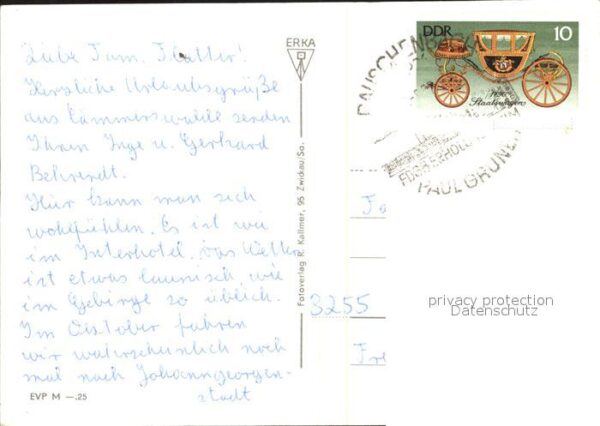 Liebe Fam. Flatter!
Herzliche Urlaubsgrüße
aus Lämmerswalde senden
Ihnen Inge u. Gerhard
Behrendt.
Hier kann man sich
wohlfühlen. Es ist wie
im Interhotel. Das Wetter
ist etwas launisch, wie
im Gebirge so üblich.
Im Oktober fahren
wir wahrscheinlich noch
mal nach Johanngeorgen-
stadt
EVP M —.25
ERKA
Fotoverlag R. Kallmer, 95 Zwickau/Sa.
DDR 10
Staatswagen
RAUSCHENBACH
FDGB-ERHOLU
PAUL GRUNER
3255
privacy protection
Datenschutz